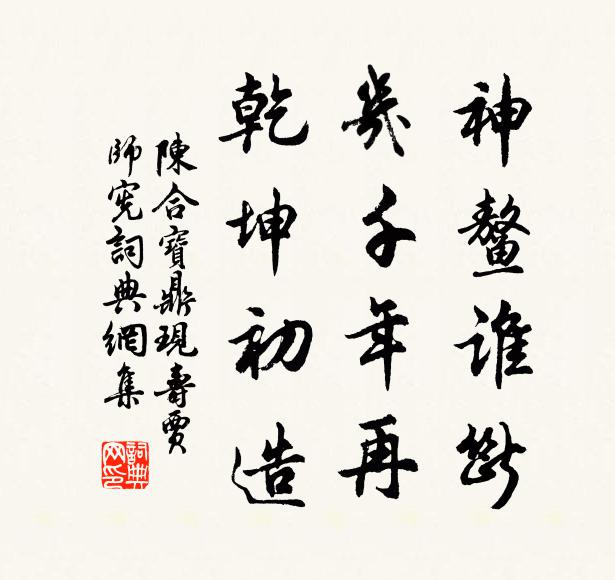 神鰲誰斷
幾千年再
乾坤初造
陳合寶鼎現壽賈
師宪詞典網集
詞典
网印